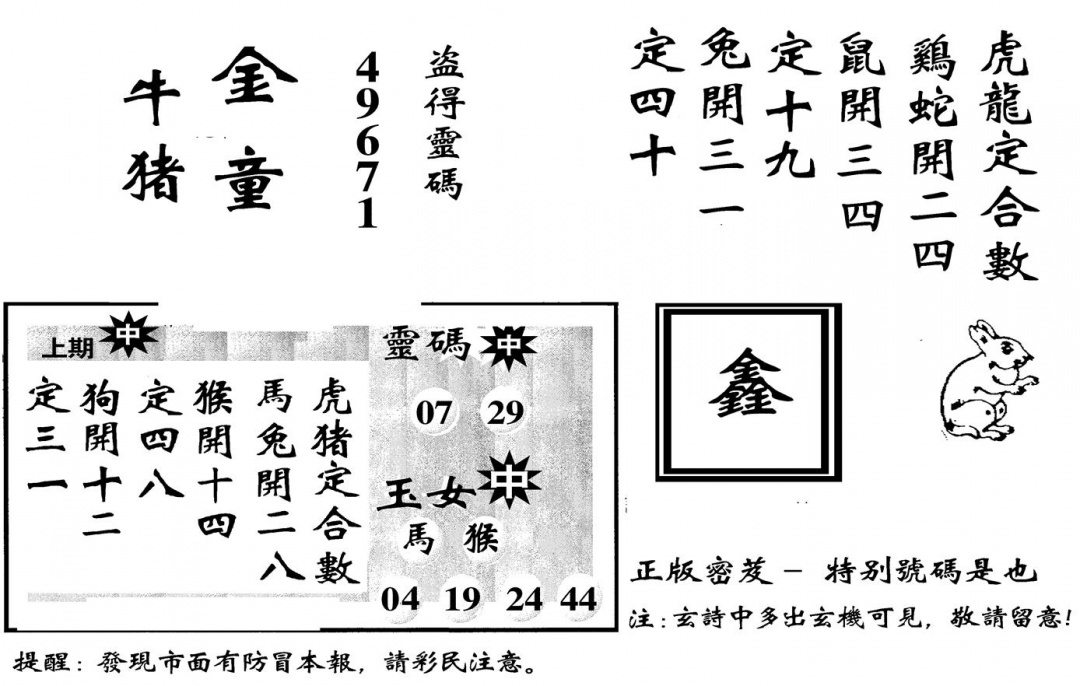 金童
牛猪
盜得靈碼
49671
虎龍定合數
鷄蛇開二四
鼠開三四
定十九
兔開三一
定四十
上期
中
虎猪定合數
馬兔開二八
猴開十四
定四八
狗開十二
定三一
靈碼
中
07 29
玉女
中
馬 猴
04 19 24 44
鑫
正版密茇－特别號碼是也
注:玄詩中多出玄機可見，敬請留意!
提醒：發現市面有防冒本報，請彩民注意。